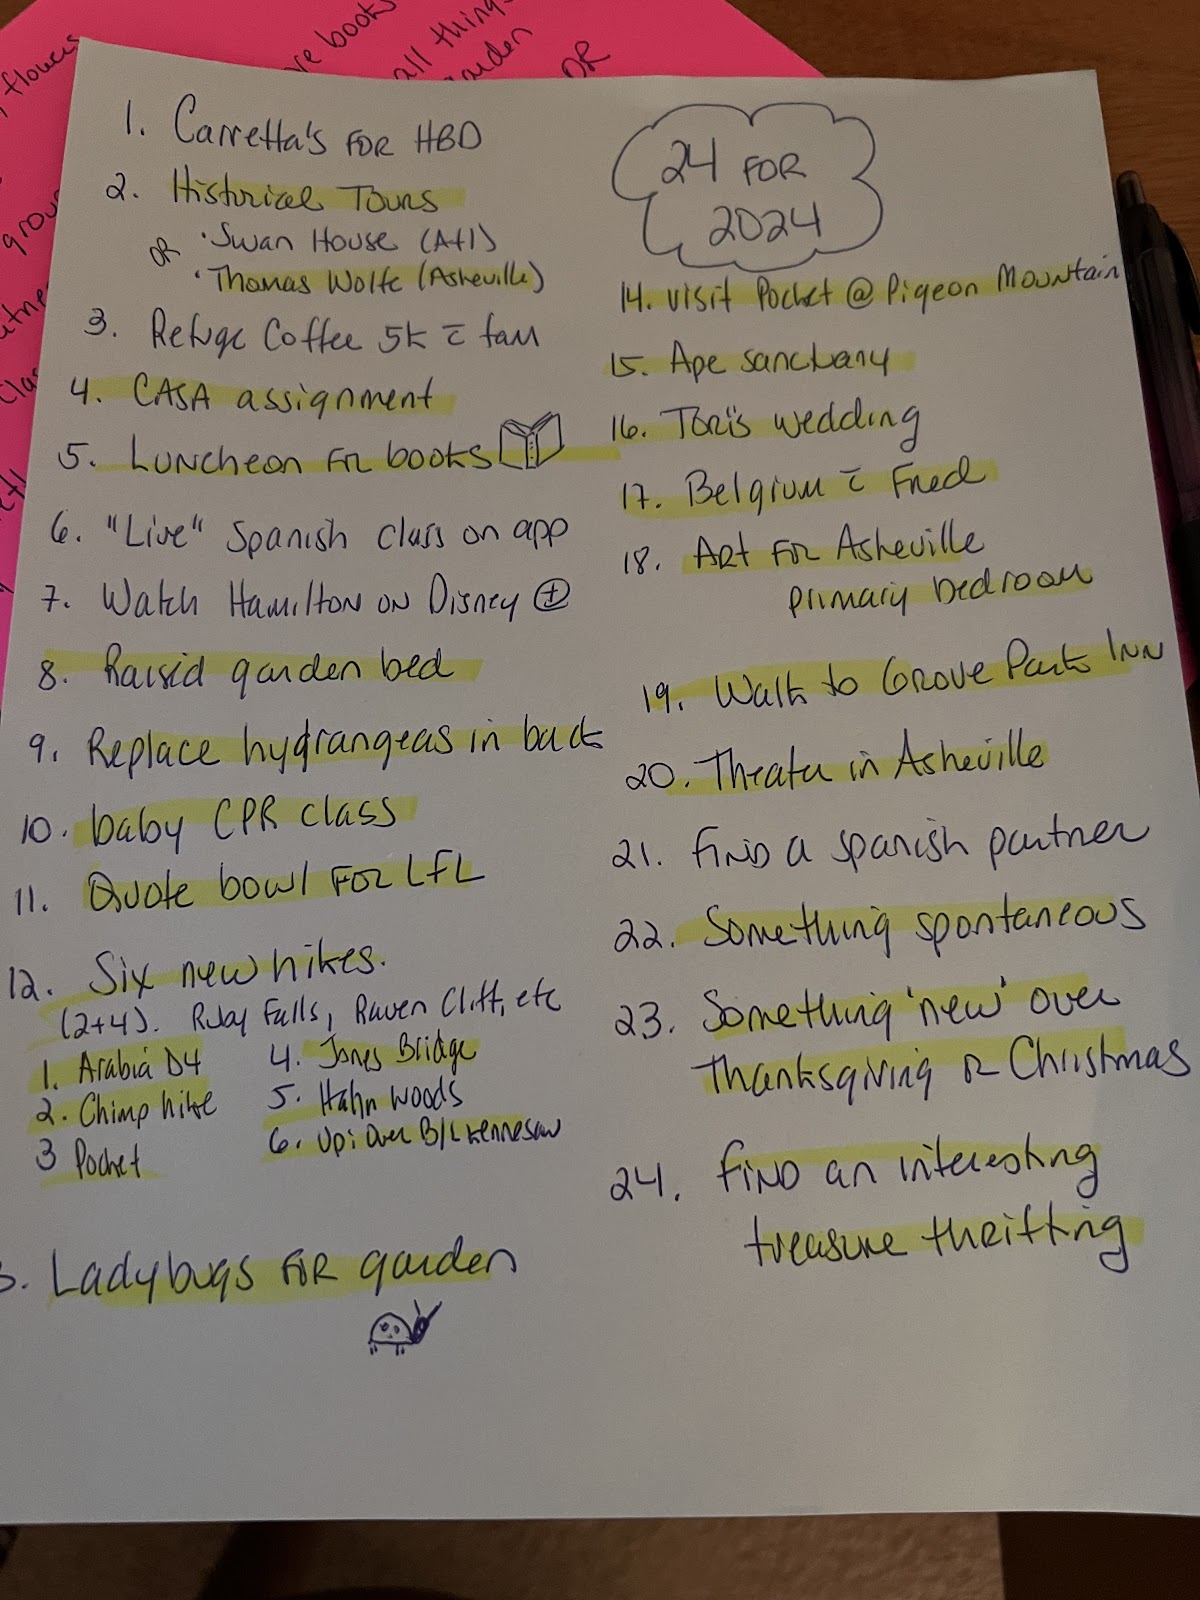 flowers
re books
all things
garden
OR
24 FOR
2024
1. Carretta's FOR HBD
2. Historical Tours
OR • Swan House (Atl)
• Thomas Wolfe (Asheville)
3. Refuge Coffee 5K c̄ fam
4. CASA assignment
5. Luncheon for books
6. "Live" Spanish class on app
7. Watch Hamilton on Disney +
8. Raised garden bed
9. Replace hydrangeas in back
10. baby CPR class
11. Quote bowl FOR LFL
12. Six new hikes.
(2+4). Ruby Falls, Raven Cliff, etc
1. Arabia D4
2. Chimp hike
3 Pocket
4. Jones Bridge
5. Hahn woods
6. Up; Over B/L Kennesaw
3. Ladybugs FOR garden
14. visit Pocket @ Pigeon Mountain
15. Ape sanctuary
16. Tori's wedding
17. Belgium c̄ Fred
18. Art for Asheville
primary bedroom
19. Walk to Grove Park INN
20. Theater in Asheville
21. find a spanish partner
22. Something spontaneous
23. Something 'new' over
Thanksgiving or Christmas
24. find an interesting
treasure thrifting